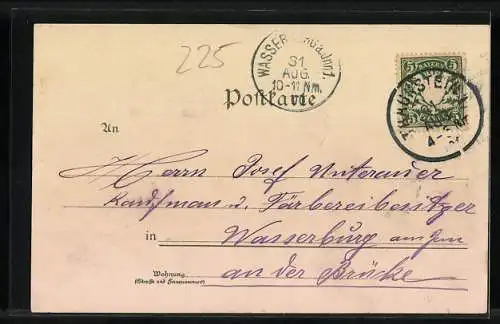 225
WASSERBURG a. Inn 1.
31
AUG.
10-11 Nm.
BAYERN
5 5
TRAUNSTEIN
Postkarte
An
Herrn Josef Unterauer
Kaufman u. Färbereibesitzer
in Wasserburg am Inn
an der Brücke
Wohnung
(Straße und Hausnummer)